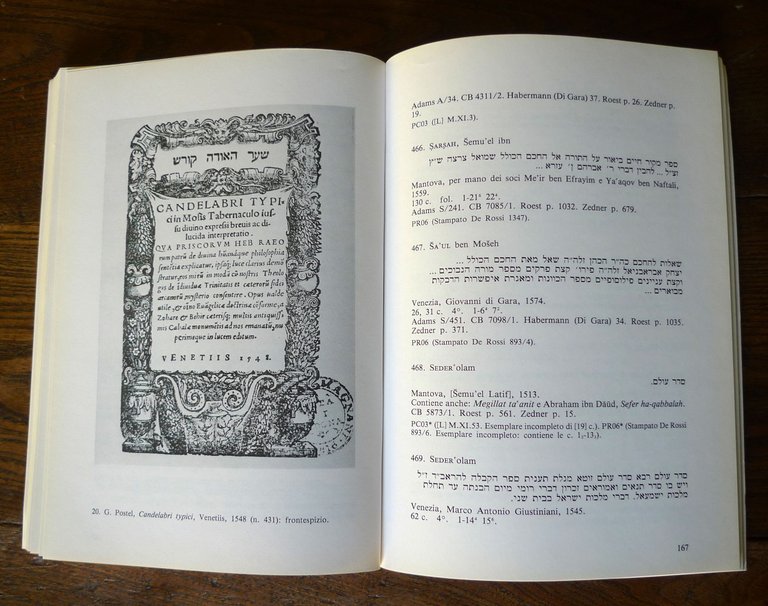 שער האורה קודש
CANDELABRI TYPI
ci in Mosis Tabernaculo ius-
su diuino expressi breuis ac di-
lucida interpretatio.
QVA PRISCORVM HEB RAEO
rum patrũ de diuina
philosophia
sententia explicatur, ipsaq; luce clarius demõ
stratur, eos mir in modũ cõ nostris Theolo
gis de
Trinitatis et caterorũ fidei
arcanorũ mysterio consentire. Opus ualde
utile, et
Euãgelicæ doctrinæ cõsorme, e
Zohare et Behir cæterisq; multis antiquissi-
mis Cabalæ monumẽtis ad nos emanatũ, nu
perimeque in lucem editum.
VENETIIS 1548.
20. G. Postel, Candelabri typici, Venetiis, 1548 (n. 431): frontespizio.
Adams A/34. CB 4311/2. Habermann (Di Gara) 37. Roest p. 26. Zedner p.
19.
PC03 ([L] M.XI.3).
466. ṢARṢAH, Šemu'el ibn
ספר מקור חיים ביאור על התורה אל החכם הכולל שמואל צרצה ש״ץ
וצ״ל ... להבין דברי ר׳ אברהם ן׳ עזרא ...
Mantova, per mano dei soci Me'ir ben Efrayim e Ya'aqov ben Naftali,
1559.
130 c. fol. 1-21⁶ 22⁴.
Adams S/241. CB 7085/1. Roest p. 1032. Zedner p. 679.
PR06 (Stampato De Rossi 1347).
467. ŠA'UL ben Mošeh
שאלות להחכם כה״ר הכהן זלה״ה שאל מאת החכם הכולל ...
יצחק אברבניאל זלה״ה פירו׳ קצת פרקים מספר מורה הנבוכים ...
וקצת עניינים פילוסופיים מספר הכוונות ומאגרת איפשרות הדבקות
מבוארים ...
Venezia, Giovanni di Gara, 1574.
26, 31 c. 4°. 1-6⁴ 7².
Adams S/451. CB 7098/1. Habermann (Di Gara) 34. Roest p. 1035.
Zedner p. 371.
PR06 (Stampato De Rossi 893/4).
468. SEDER 'olam
סדר עולם.
Mantova, [Šemu'el Latif], 1513.
Contiene anche: Megillat ta'anit e Abraham ibn Dāūd, Sefer ha-qabbalah.
CB 5873/1. Roest p. 561. Zedner p. 15.
PC03* ([L] M.XI.53. Esemplare incompleto di [19] c.). PR06* (Stampato De Rossi
893/6. Esemplare incompleto: contiene le c. 1₁-13₁).
469. SEDER 'olam
סדר עולם רבא סדר עולם זוטא מגלת תענית ספר הקבלה להראב״ד ז״ל
ויש בו סדר תנאים ואמוראים זכרון דברי רומי מיום הבנתה עד תחלת
מלכות ישמעאל. דברי מלכות ישראל בבית שני.
Venezia, Marco Antonio Giustiniani, 1545.
62 c. 4°. 1-14⁴ 15⁶.
167